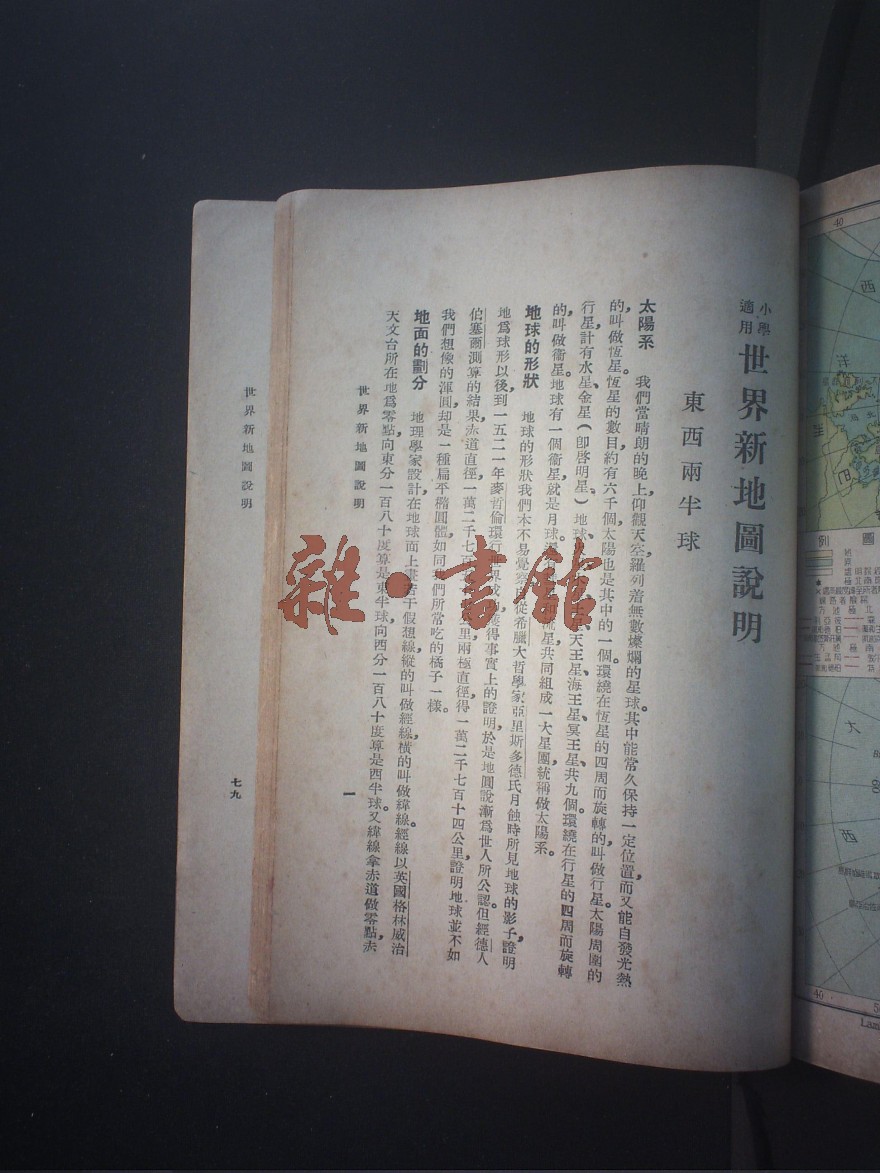 小學適用 世界新地圖說明
東西兩半球
太陽系 我們當晴朗的晚上，仰觀天空，羅列着無數燦爛的星球。其中能常久保持一定位置，而又能自發光熱
的，叫做恆星。恆星的數目約有六千個，太陽也是其中的一個。環繞在恆星的四周而旋轉的，叫做行星。太陽周圍的
行星，計有水星、金星（卽啓明星）、地球、天王星、海王星、冥王星、共九個。環繞在行星的四周而旋轉
的，叫做衞星。地球有一個衞星，就是月球。流星共同組成一大星團，統稱做太陽系。
地球的形狀 地球的形狀，我們本不易覺察，從希臘大哲學家亞里斯多德氏月蝕時所見地球的影子，證明
地爲球形以後，到一五二一年麥哲倫環行世界成功，得事實上的證明，於是地圓說漸爲世人所公認。但經德人
伯塞爾測算的結果，赤道直徑，一萬二千七百公里，兩極直徑，得一萬二千七百十四公里，證明地球並不如
我們想像的渾圓，却是一種扁平橢圓體，如同我們所常吃的橘子一樣。
地面的劃分 地理學家設計在地球面上畫若干假想線，縱的叫做經線，橫的叫做緯線。經線以英國格林威治
天文台所在地爲零點，向東分一百八十度，算是東半球，向西分一百八十度，算是西半球。又緯線拿赤道做零點，赤
世界新地圖說明
一
世界新地圖說明
七九
圖例
40
西
洋
大
西
40